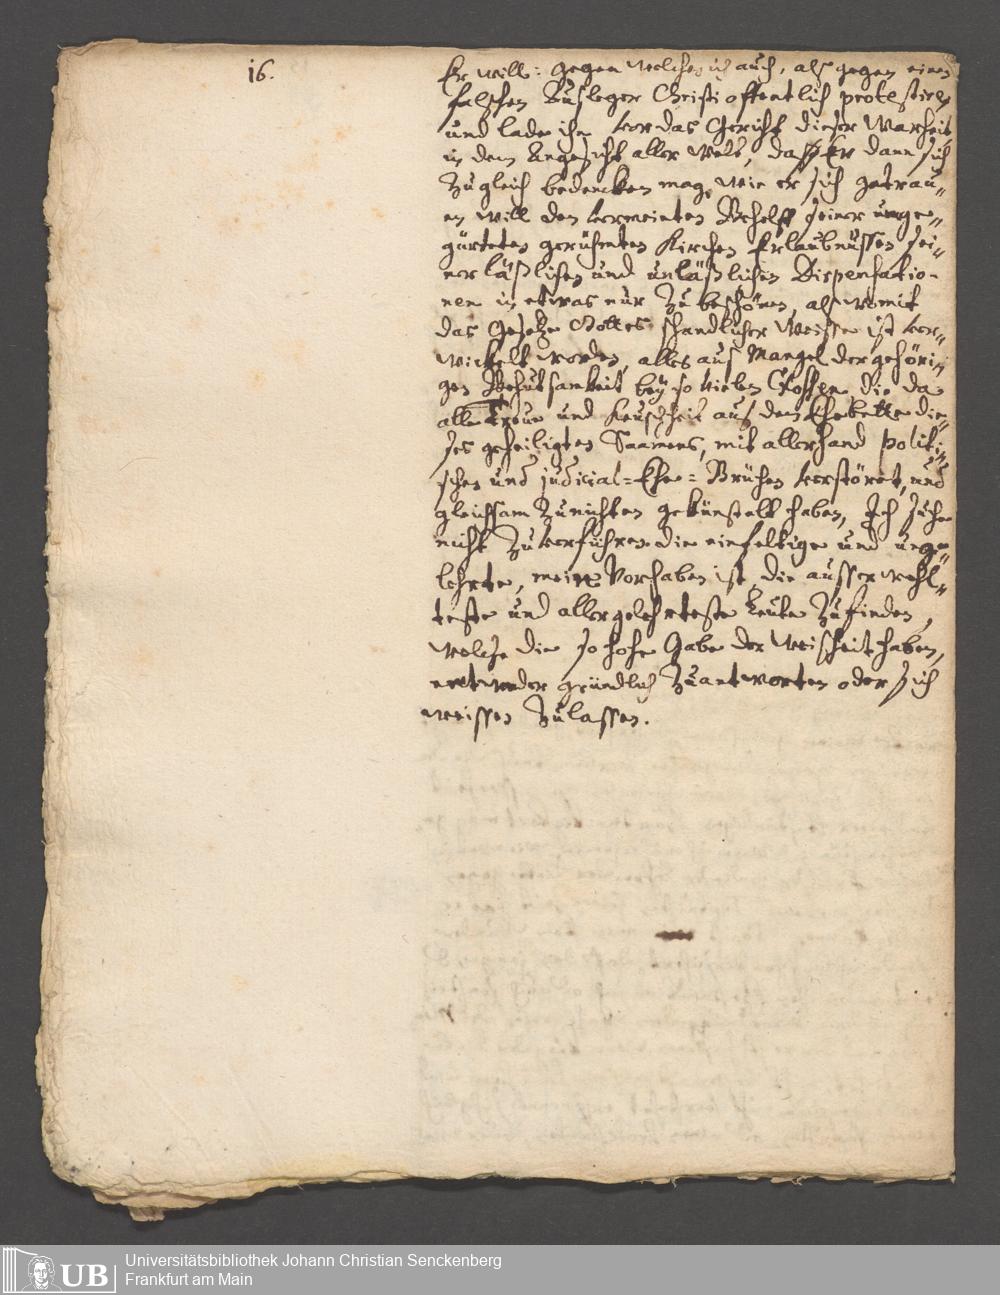 16.
Er will: gegen welchen ich auch, als gegen einen
falschen Ausleger Christi offentlich protestire,
und lade ihn vor das Gericht dieser Warheit
in dem Angesicht aller Welt, daß Er dann sich
zugleich bedencken mag, wie er sich getrau-
en will den vermeinten Behelff seiner unge-
gürteten gerühmten Kirchen Erlaubnüssen sei-
ner läßlichen und unläßlichen Dispensatio-
nen in etwas nur zu beschönen, als womit
das Gesetze Gottes schandlicher Weisse ist ver-
wickelt worden, alles aus Mangel der gehöri-
gen Behutsamkeit bey so vielen Glossen, die da
alle Treue und Keuschheit aus dem Ehebette die-
ses geheiligten Saamens, mit allerhand politi-
schen und judicial-Ehe-Brüchen verstöret, und
gleichsam zunichten gekünstelt haben, Ich suche
nicht zuverführen die einfeltige und unge-
lehrte, mein Vorhaben ist, die ausserwehl-
teste und allergelehrteste Leute zufinden,
welche die so hohe Gabe der Weisheit haben,
entweder gründlich zuantworten oder sich
weissen zulassen.
UB
Universitätsbibliothek Johann Christian Senckenberg
Frankfurt am Main